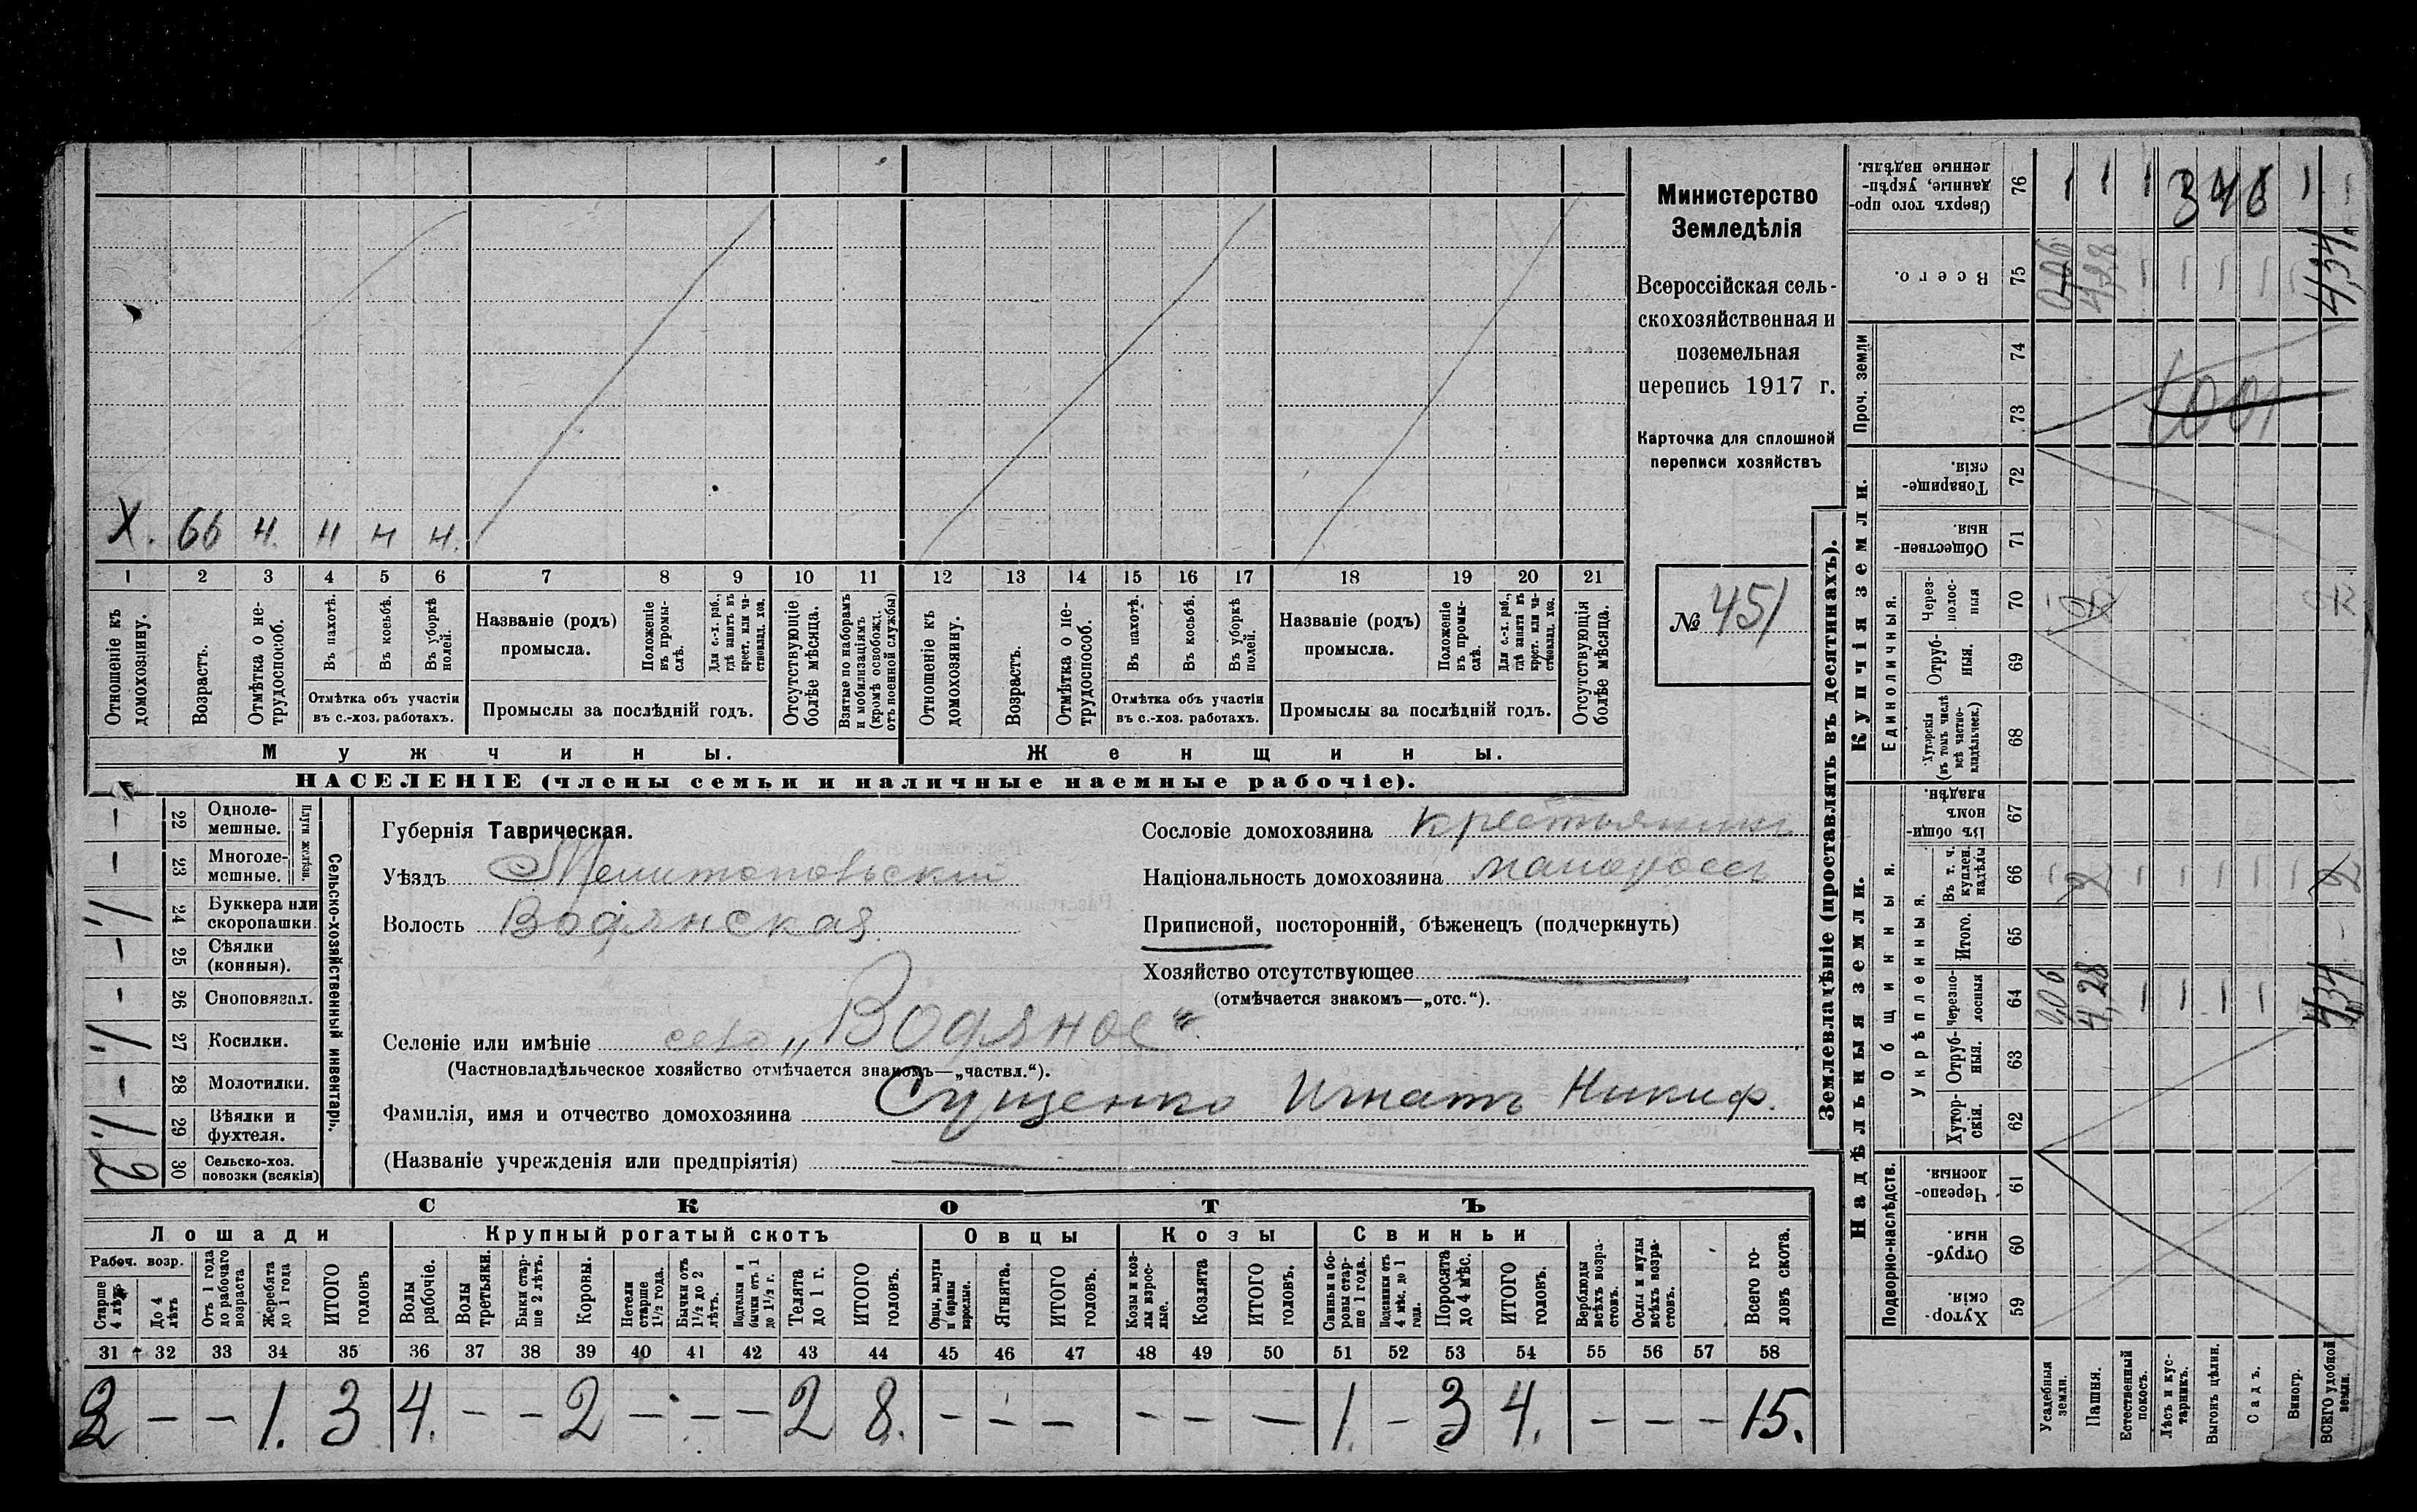 X. 66 н. н н н.
1 2 3 4 5 6 7 8 9 10 11 12 13 14 15 16 17 18 19 20 21
Отношеніе къ домохозяину.
Возрастъ.
Отмѣтка о не-
трудоспособ.
Въ пахотѣ.
Въ косьбѣ.
Въ уборкѣ полей.
Отмѣтка объ участіи
въ с.-хоз. работахъ.
Названіе (родъ)
промысла.
Положеніе въ промы-
слѣ.
Для с.-х. раб., гдѣ занятъ въ крест. или ча-
стновлад. хоз.
Промыслы за послѣдній годъ.
Отсутствующіе болѣе мѣсяца.
Взятые по наборамъ и мобилизаціямъ (кромѣ освобожд. отъ военной службы)
Отношеніе къ домохозяину.
Возрастъ.
Отмѣтка о не-
трудоспособ.
Въ пахотѣ.
Въ косьбѣ.
Въ уборкѣ полей.
Отмѣтка объ участіи
въ с.-хоз. работахъ.
Названіе (родъ)
промысла.
Положеніе въ промы-
слѣ.
Для с.-х. раб., гдѣ занята въ крест. или ча-
стновлад. хоз.
Промыслы за послѣдній годъ.
Отсутствующія болѣе мѣсяца.
Мужчины. Женщины.
НАСЕЛЕНІЕ (члены семьи и наличные наемные рабочіе).
Министерство
Земледѣлія
Всероссійская сель-
скохозяйственная и
поземельная
перепись 1917 г.
Карточка для сплошной
переписи хозяйствъ
№ 451
Сельско-хозяйственный инвентарь.
Плуги желѣзн.
— 22 Одноле-
мешные.
— 23 Многоле-
мешные.
1. 24 Буккера или
скоропашки
— 25 Сѣялки
(конныя).
— 26 Сноповязал.
1. 27 Косилки.
— 28 Молотилки.
1. 29 Вѣялки и
фухтеля.
2 30 Сельско-хоз.
повозки (всякія)
Губернія Таврическая.
Уѣздъ Мелитопольскій
Волость Водянская
Сословіе домохозяина крестьянинъ
Національность домохозяина малороссъ
Приписной, посторонній, бѣженецъ (подчеркнуть)
Хозяйство отсутствующее —
(отмѣчается знакомъ—„отс.“).
Селеніе или имѣніе село „Водяное“
(Частновладѣльческое хозяйство отмѣчается знакомъ—„частвл.“).
Фамилія, имя и отчество домохозяина Сущенко Игнатъ Никиф.
(Названіе учрежденія или предпріятія) —
СКОТЪ
Лошади Крупный рогатый скотъ Овцы Козы Свиньи
Рабоч. возр.
Старше 4 лѣтъ
До 4 лѣтъ
Отъ 1 года до рабочаго возраста
Жеребята до 1 года
ИТОГО головъ
Волы рабочіе.
Волы третьяки.
Быки стар-
ше 2 лѣтъ.
Коровы.
Нетели старше 1½ года.
Бычки отъ 1½ до 2 лѣтъ.
бычки отъ 1 до 1½ г.
Телята до 1 г.
ИТОГО головъ.
Овцы, валухи и бараны взрослые.
Ягнята.
ИТОГО головъ.
Козы и коз-
лы взрос-
лые.
Козлята
ИТОГО головъ.
Свиньи и бо-
ровы стар-
ше 1 года.
Подсвинки отъ 4 мѣс. до 1 года.
Поросята до 4 мѣс.
ИТОГО головъ.
Верблюды всѣхъ возра-
стовъ.
Ослы и мулы всѣхъ возра-
стовъ.
Всего го-
ловъ скота.
31 32 33 34 35 36 37 38 39 40 41 42 43 44 45 46 47 48 49 50 51 52 53 54 55 56 57 58
2 — — 1. 3 4. — — 2 — — — 2 8. — — — — — — 1. — 3 4. — — — 15.
Землевладѣніе (проставлять въ десятинахъ).
Сверхъ того про-
данные, укрѣп-
ленные надѣлы. 76
Всего. 75
Проч. земли
74
73
Купчія земли.
Товарище-
скія. 72
Обществен-
ныя. 71
Единоличныя.
Через-
полос-
ныя 70
Отруб-
ныя. 69
Хуторскія (въ томъ числѣ всѣ частно-
владѣльческ.) 68
Надѣльныя земли.
Общинныя.
Въ общин-
номъ владѣн. 67
Укрѣпленныя.
Въ т. ч. куплен. надѣлы 66
Итого. 65
Черезпо-
лосныя 64
Отруб-
ныя. 63
Хутор-
скія. 62
Подворно-наслѣдств.
Черезпо-
лосныя 61
Отруб-
ныя 60
Хутор-
скія. 59
346
4,28
4,34
0,06
4,28
4,34
Усадебныя земли.
Пашня.
Естественный покосъ.
Лѣсъ и кус-
тарникъ.
Выгонъ цѣлин.
Садъ.
Виногр.
ВСЕГО удобной земли.